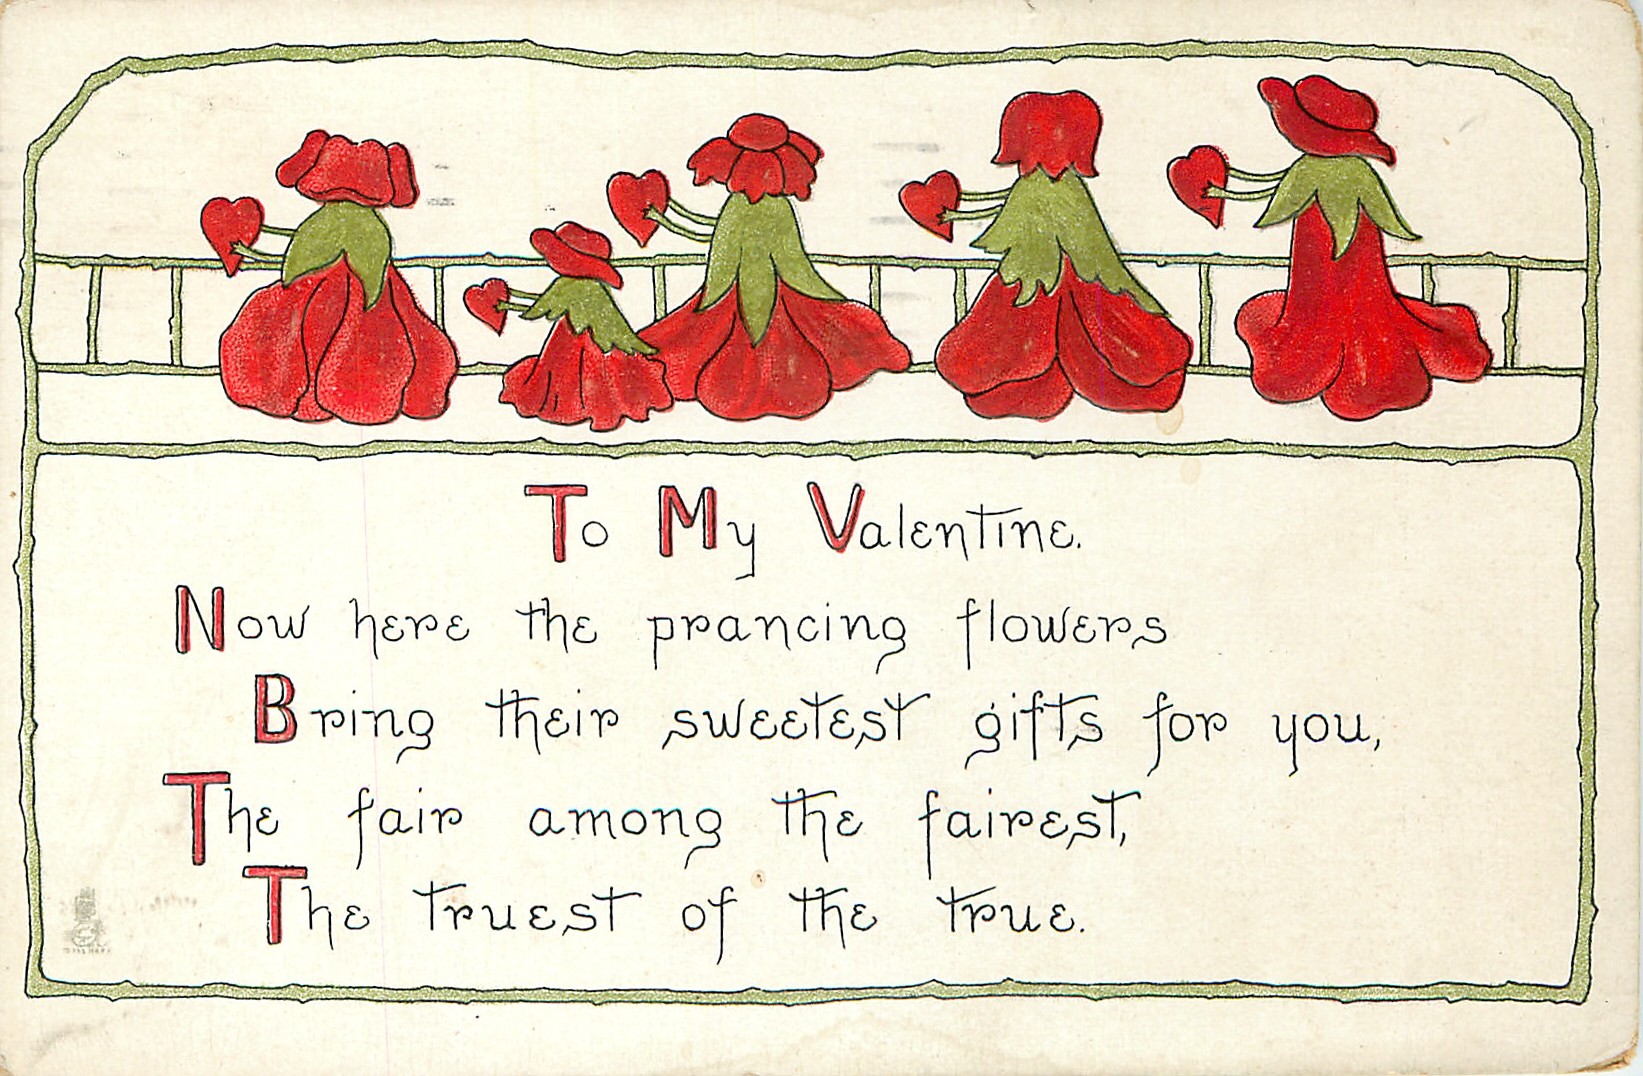 To My Valentine.
Now here the prancing flowers
Bring their sweetest gifts for you,
The fair among the fairest,
The truest of the true.